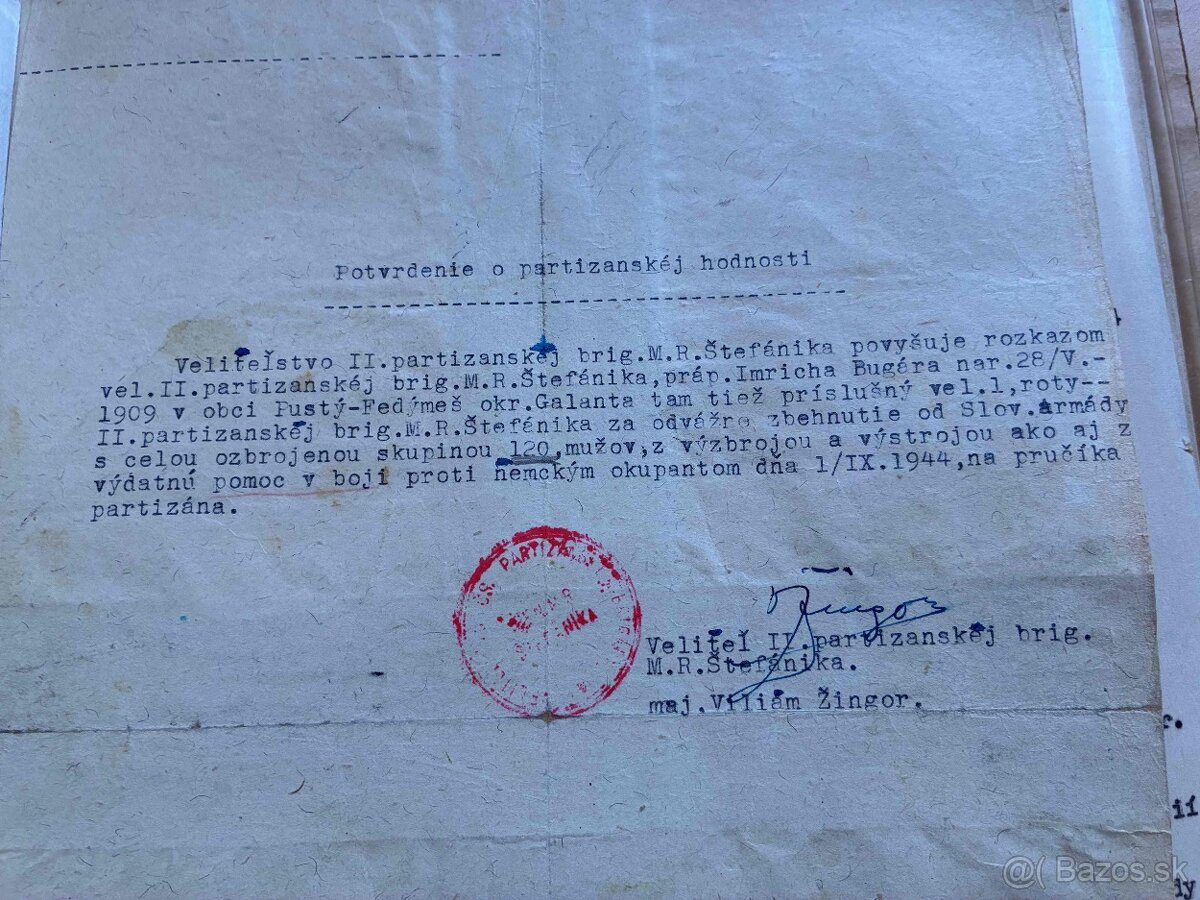 Potvrdenie o partizanskéj hodnosti
Veliteľstvo II.partizanskéj brig.M.R.Štefánika povyšuje rozkazom
vel.II.partizanskéj brig.M.R.Štefánika,práp.Imricha Bugára nar.28/V.-
1909 v obci Pustý-Fedýmeš okr.Galanta tam tiež príslušný vel.1,roty--
II.partizanskéj brig.M.R.Štefánika za odvážre zbehnutie od Slov.armády
s celou ozbrojenou skupinou 120,mužov,z výzbrojou a výstrojou ako aj z
výdatnú pomoc v boji proti nemckým okupantom dňa 1/IX.1944,na pručíka
partizána.
ČS. PARTIZÁNS
Žingor
Veliteľ II.partizanskéj brig.
M.R.Štefánika.
maj.Viliám Žingor.
ií
dy
@( Bazos.sk